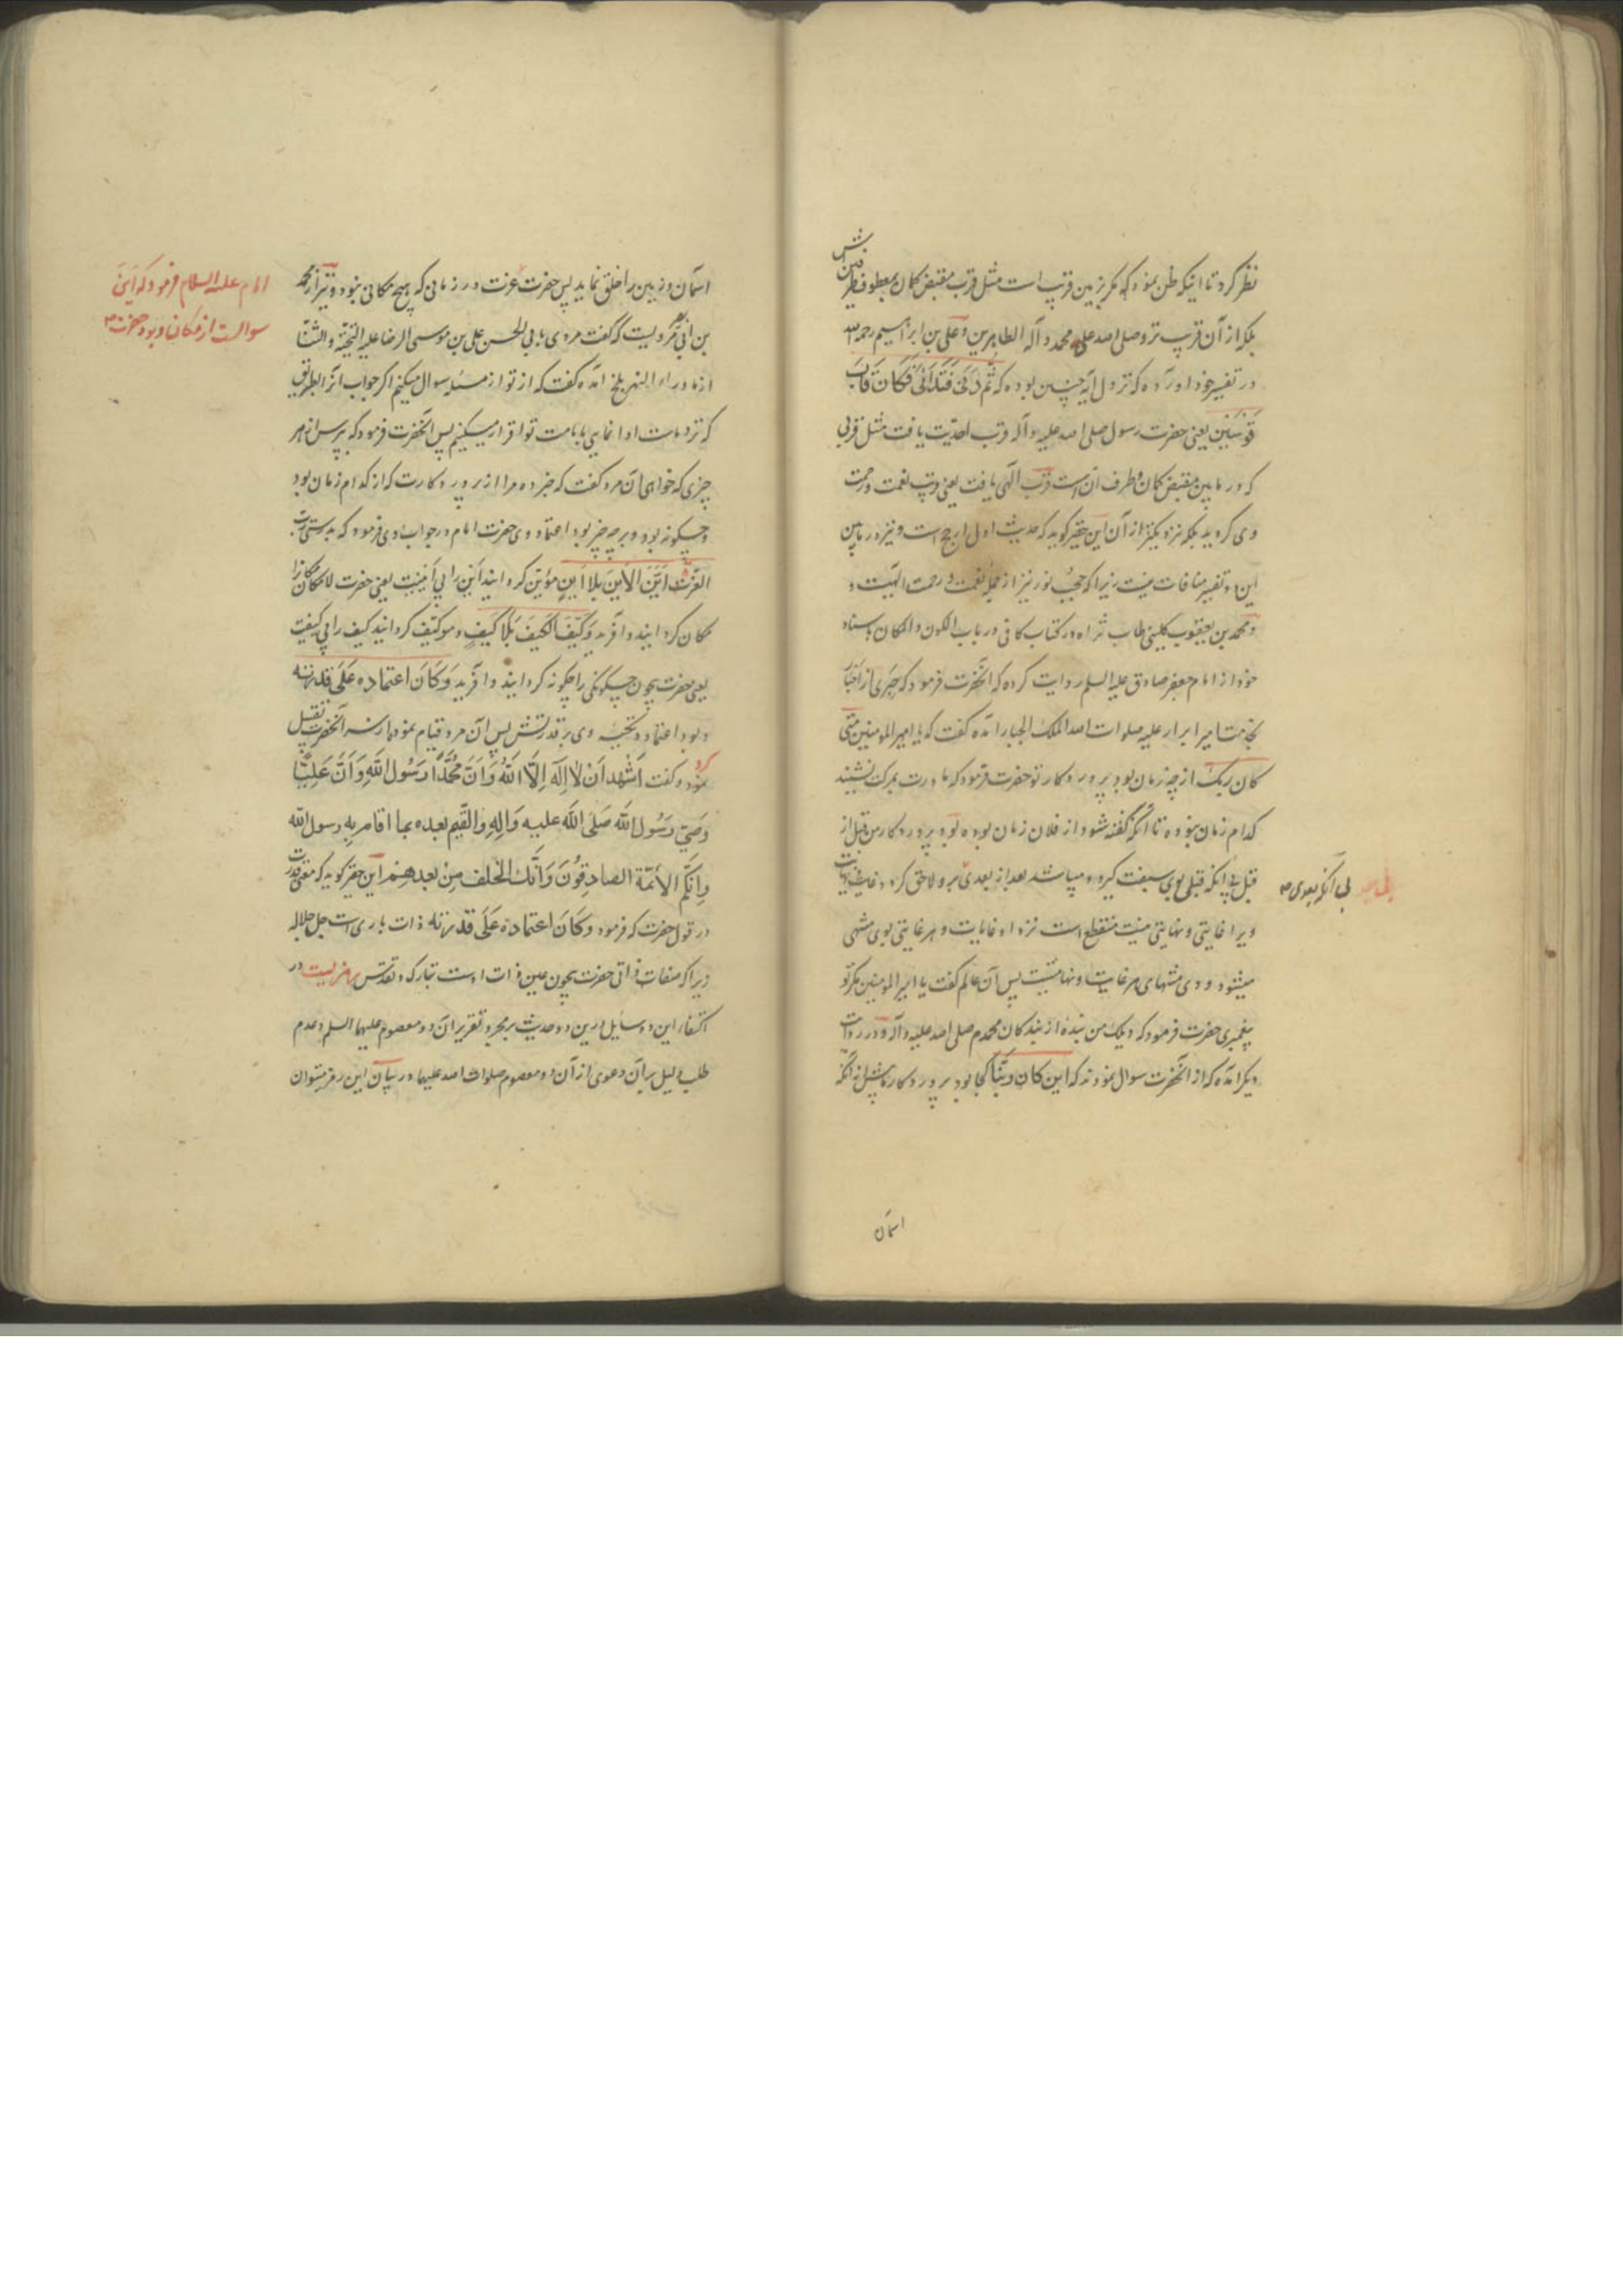 نظر کرد تا اینکه ظن نمود که مکر بزمین قریب است مثل قرب مقبض کمان بمعطوف طرفینش
بلکه از آن قریب تر و صلی الله علی محمد و آله الطاهرین و علی بن ابراهیم رحمه الله
در تفسیر خود آورده که نزول آیه چنین بوده که ثُمَّ دَنَی فَتَدَانَی فَکَانَ قَابَ
قَوْسَیْنِ یعنی حضرت رسول صلی الله علیه و آله قرب احدیت یافت مثل قربی
که در مابین مقبض کمان و طرف آن است قرب الهی یافت یعنی قرب نعمت و رحمت
وی کردید بلکه نزدیکتر از آن این حقیر کوید که حدیث اول ارجح است و نیز در مابین
این دو تفسیر منافات نیست زیرا که حجب نور نیز از جمله نعمت و رحمت الهیت و
و محمد بن یعقوب کلینی طاب ثراه در کتاب کافی در باب الکون و المکان باسناد
خود از امام جعفر صادق علیه السلم روایت کرده که آنحضرت فرمود که حبری از احبار
بخدمت امیر ابرار علیه صلوات الله الملک الجبار آمده گفت که یا امیر المومنین متی
کان ربک از چه زمان بود پرورد کار تو حضرت فرمود که مادرت بمرکت نشیند
کدام زمان نبوده تا آنکه گفته شود از فلان زمان بوده بود پرورد کار من قبل از
قبل بی آنکه قبلی بوی سبقت کیرد و میباشد بعد از بعد بی آنکه بعدی برو لاحق کردد و غایت و نهایت
بی آنکه بعدی
ویرا غایتی و نهایتی نیست منقطع است نزد او غایات و هر غایتی بوی منتهی
میشود و وی منتهای هر غایت و نهایتست پس آن عالم گفت یا امیر المومنین مکر تو
پیغمبری حضرت فرمود که ویلک من بنده از بندکان محمدم صلی الله علیه و آله و در روایت
دیکر آمده که از آنحضرت سوال نمودند که این کان ربنا کجا بود پرورد کار ما پیش از آنکه
اسمان
اسمان و زمین را خلق نماید پس حضرت عزت در زمانی که هیچ مکانی نبود و نیز از محمد
امام علیه السلام فرمود که این
سوالست از مکان و بود حضرت
بن ابی نصر مرویست که گفت مردی بابی الحسن علی بن موسی الرضا علیه التحیة و الثنا
از ماوراء النهر بلخ آمده گفت که از تو از مسئله سوال میکنم اکر جواب آنرا بطریق
که نزد ماست ادا نمایی بامامت تو اقرار میکنیم پس آنحضرت فرمود که بپرس از هر
چیزی که خواهی آن مرد گفت که خبر ده مرا از پرورد کارت که از کدام زمان بود
و چکونه بود و بر چه چیز بود اعتماد وی حضرت امام در جواب وی فرمود که بدرستی رب
العزت اَیَّنَ الأَینَ بِلا اَینٍ مؤیّن کردانید این را بی اینیت یعنی حضرت لامکان مکانرا
مکان کردانید و آفرید وَکَیَّفَ الکَیفَ بِلا کَیفٍ و مکیّف کردانید کیف را بی کیفیت
یعنی حضرت بیچون چکونکی را چکونه کردانید و آفرید وَکَانَ اعتمادُه عَلَی قدرته
و بود اعتماد وی بر قدرتش پس آن مرد قیام نموده سر آنحضرت تقبیل
نمود و کفت اَشْهَدُ اَنْ لا اِلٰهَ اِلَّا اللهُ وَاَنَّ مُحَمَّدًا رَسُولُ اللهِ وَاَنَّ عَلِیًّا
وَصِیُّ رَسُولِ اللهِ صَلَّی اللهُ علیه وَآلِهِ وَالقَیِّمُ بعده بما اقام به رسول الله
وَاِنَّکُم الأئمّة الصادقُونَ وَاَنَّکَ الخَلَف مِنْ بعدهِم این حقیر کوید که معنی قدرت
در قول حضرت که فرمود وَکَانَ اعتمادُه عَلَی قدرته ذات باری است جل جلاله
زیرا که صفات ذاتی حضرت بیچون عین ذات اوست تبارک و تقدس رمزیست در
اکتفاء این دو سایل درین دو حدیث بمجرد تقریر آن دو معصوم علیهما السلم و عدم
طلب دلیل بر آن دعوی از آن دو معصوم صلوات الله علیهما در بیان این رمز میتوان